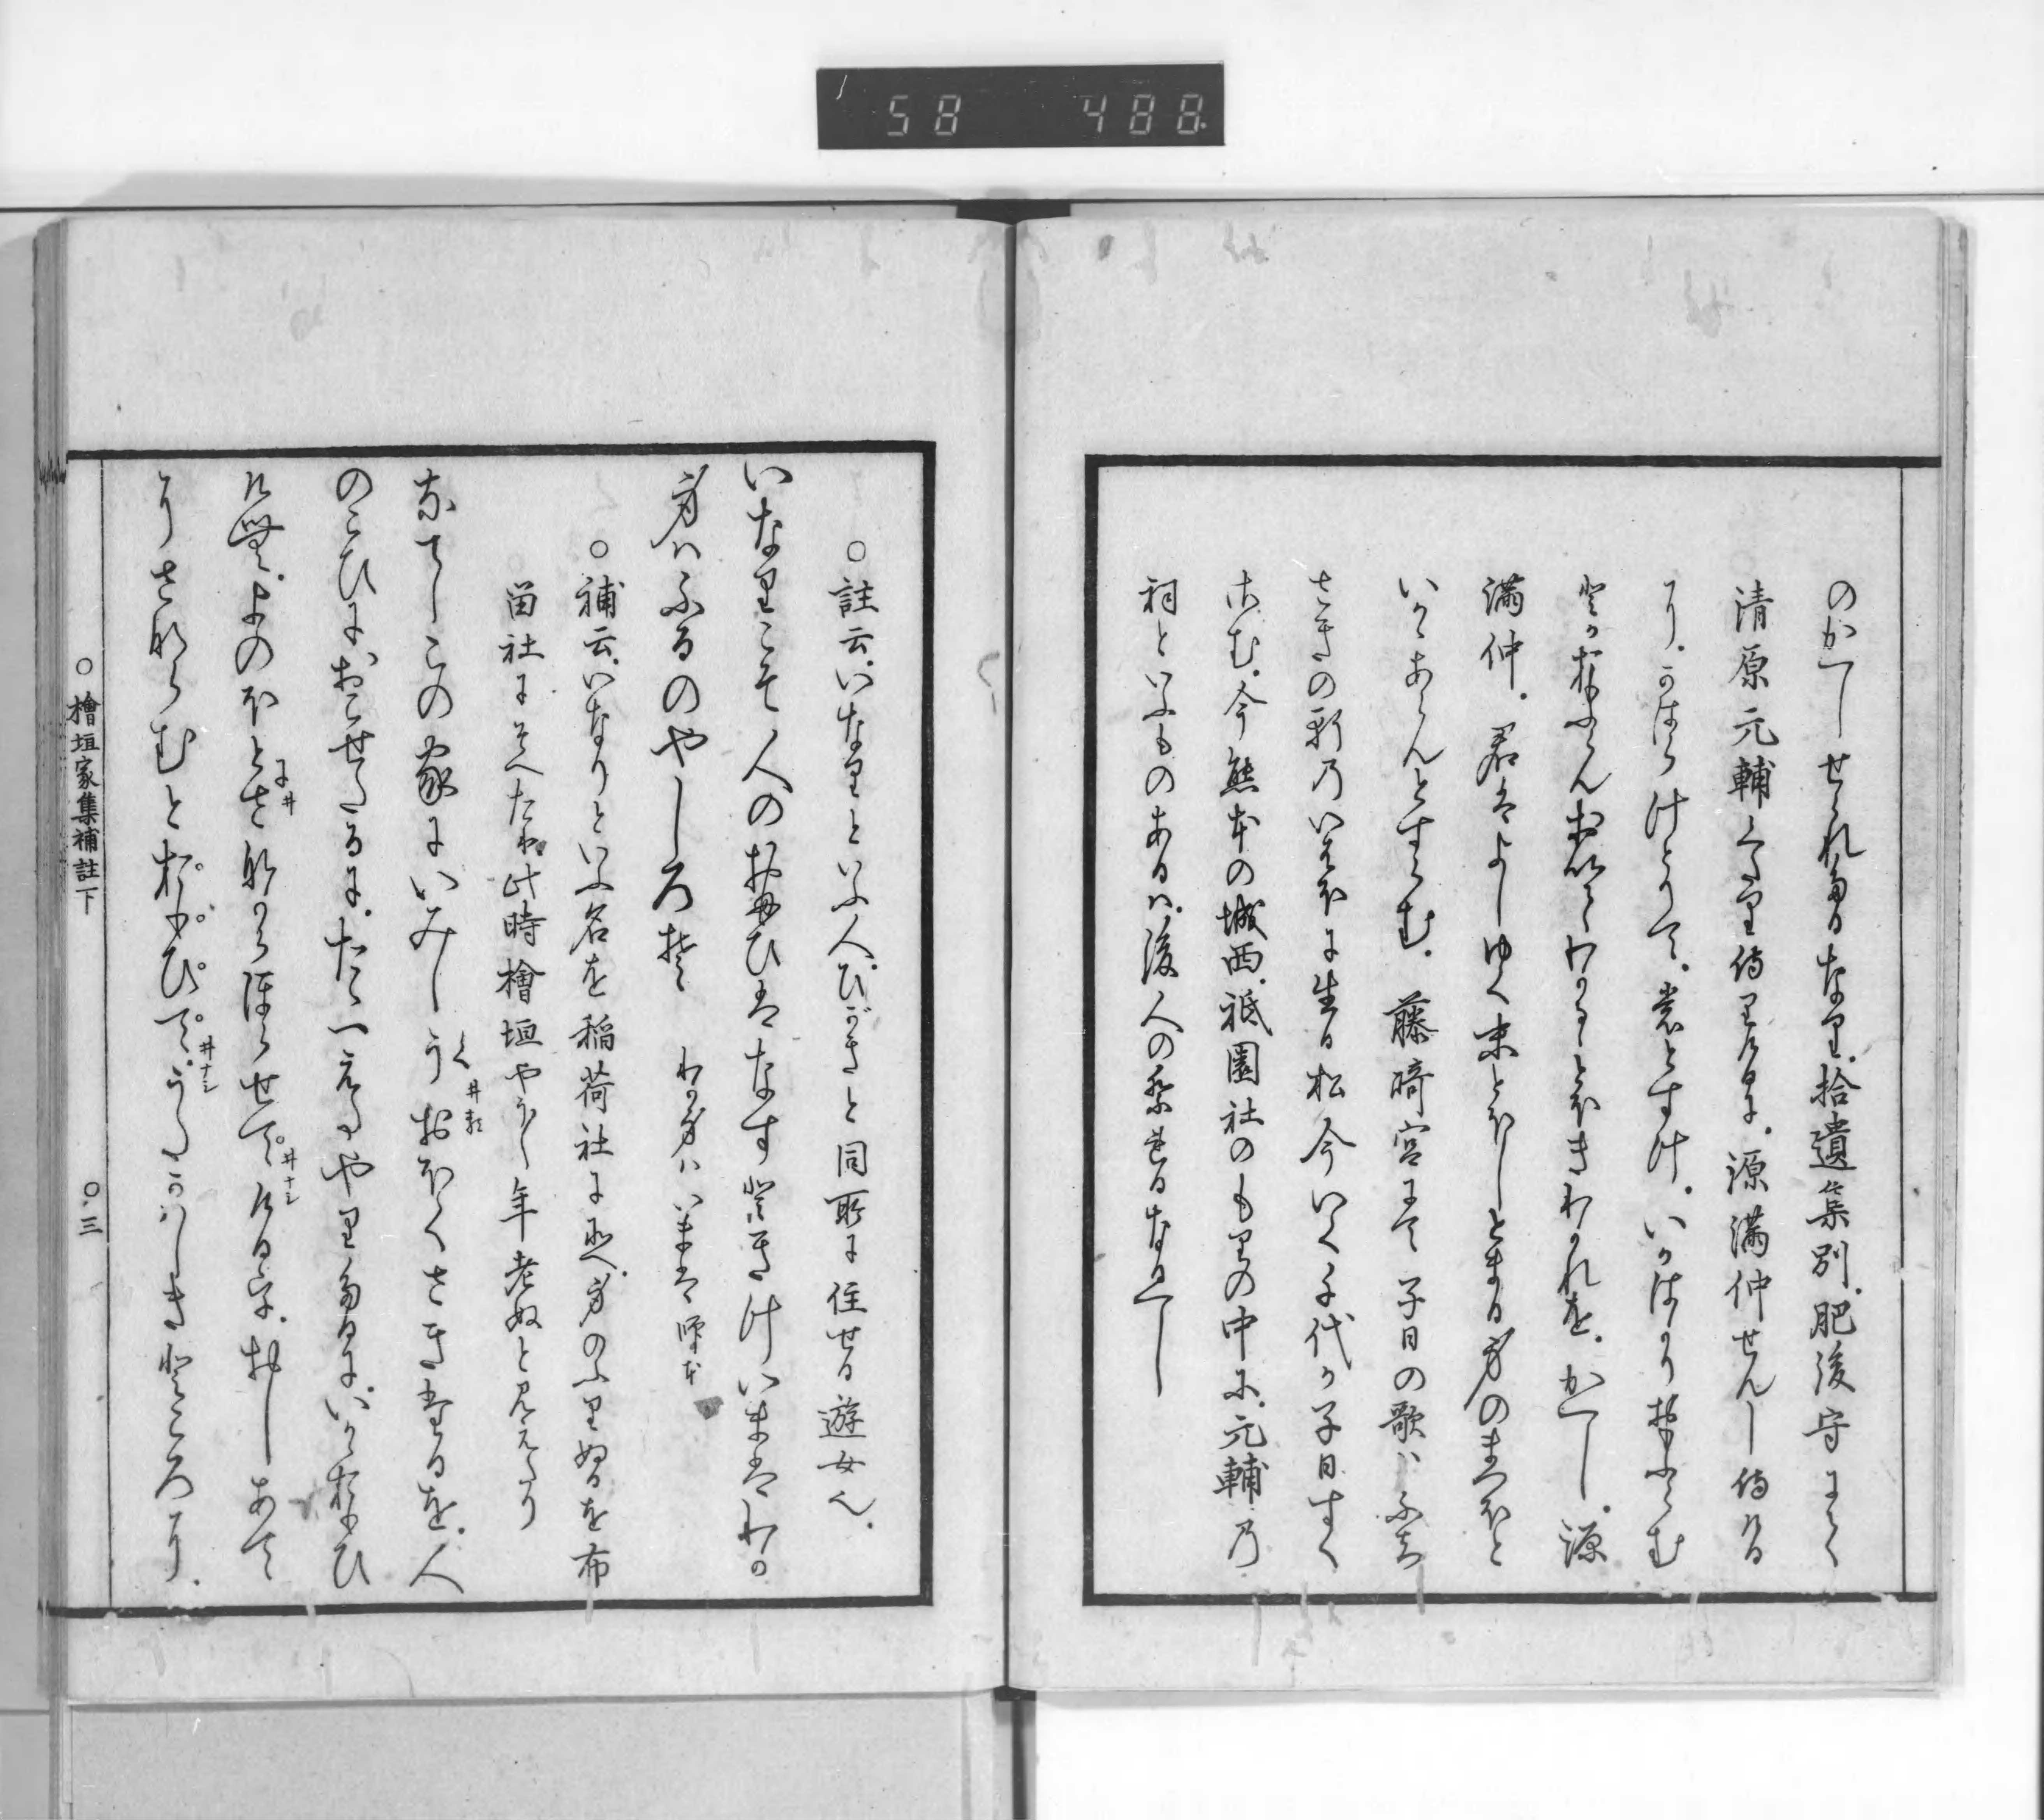 58 488
のかへしせられたるなり。拾遺集別。肥後守にて
清原元輔くたり侍りけるに。源満仲せんし侍ける
に。かはらけとりて。元すけ。いかはかり思ふらむ
とか思ふらん老てわかるゝとほきわかれを。かへし。源
満仲。君はよしゆく末とほしとまる身のまつほと
いかゝあらんとすらむ。藤崎宮にて子日の歌ハふち
さきの軒乃いはほに生る松今いく千代か子日すく
さむ。今熊本の城西。祇園社のもりの中に。元輔乃
祠といふものあるハ。後人の祭れるなるへし
○註云。いなりといふ人。ひがきと同所に住せる遊女也。
いなりこそ人の拝ひはなすときけいまはわか
身ハふるのやしろそ わか身ハいまは 師本
○補云。いなりといふ名を稲荷社によへ。身のふりぬるを布
留社にそへたり。此時檜垣やう〳〵年老ぬと見えたり
なてしこの家にいみしうおほくさきたるを。人
のこひにおこせたるに。たゝ一えたやりたるに。いかゝ思ひ
けむ。よのほとさなからほらせてける家。おしあて
にさならむと思ひて。うたかはしきところに。
○檜垣家集補註下 ○三